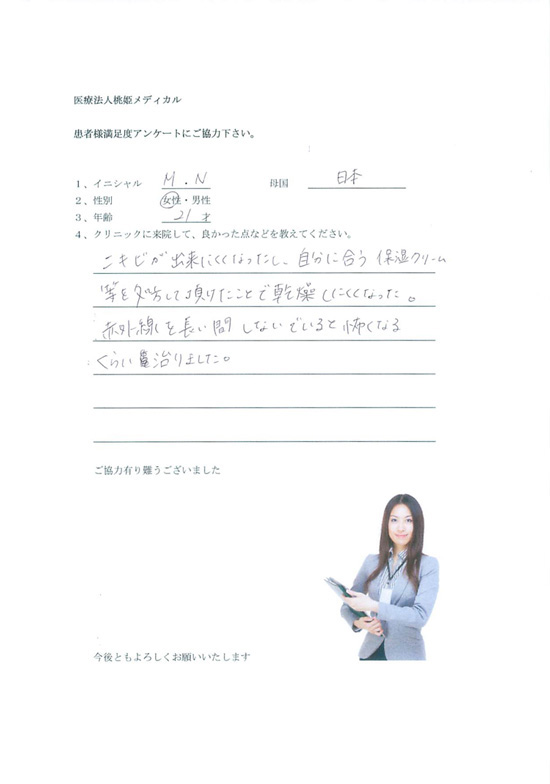 医療法人桃姫メディカル
患者様満足度アンケートにご協力下さい。
1、イニシャル M.N 母国 日本
2、性別 女性・男性
3、年齢 21才
4、クリニックに来院して、良かった点などを教えてください。
ニキビが出来にくくなったし、自分に合う保湿クリーム
等を処方して頂けたことで乾燥しにくくなった。
赤外線を長い間しないでいると怖くなる
くらい治りました。
ご協力有り難うございました
今後ともよろしくお願いいたします